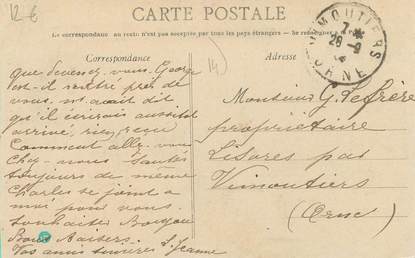 12 €
CARTE POSTALE
La correspondance au recto n'est pas acceptée par tous les pays étrangers - Se renseigner à la Poste
Correspondance
Adresse
14
VIMOUTIERS
7
26-9
ORNE
que devenez-vous George
est-il rentré près de
vous, m'avait dit
qu'il écrirait aussitôt
arrivé, rien reçu
Comment allez-vous
Chez-nous santés
toujours de même
Charles se joint à
moi pour vous
souhaiter Bonjour
Bons Baisers
Vos amis sincères L. Jeanne
Monsieur G. Lefrère
propriétaire
Lisores par
Vimoutiers
(Orne)